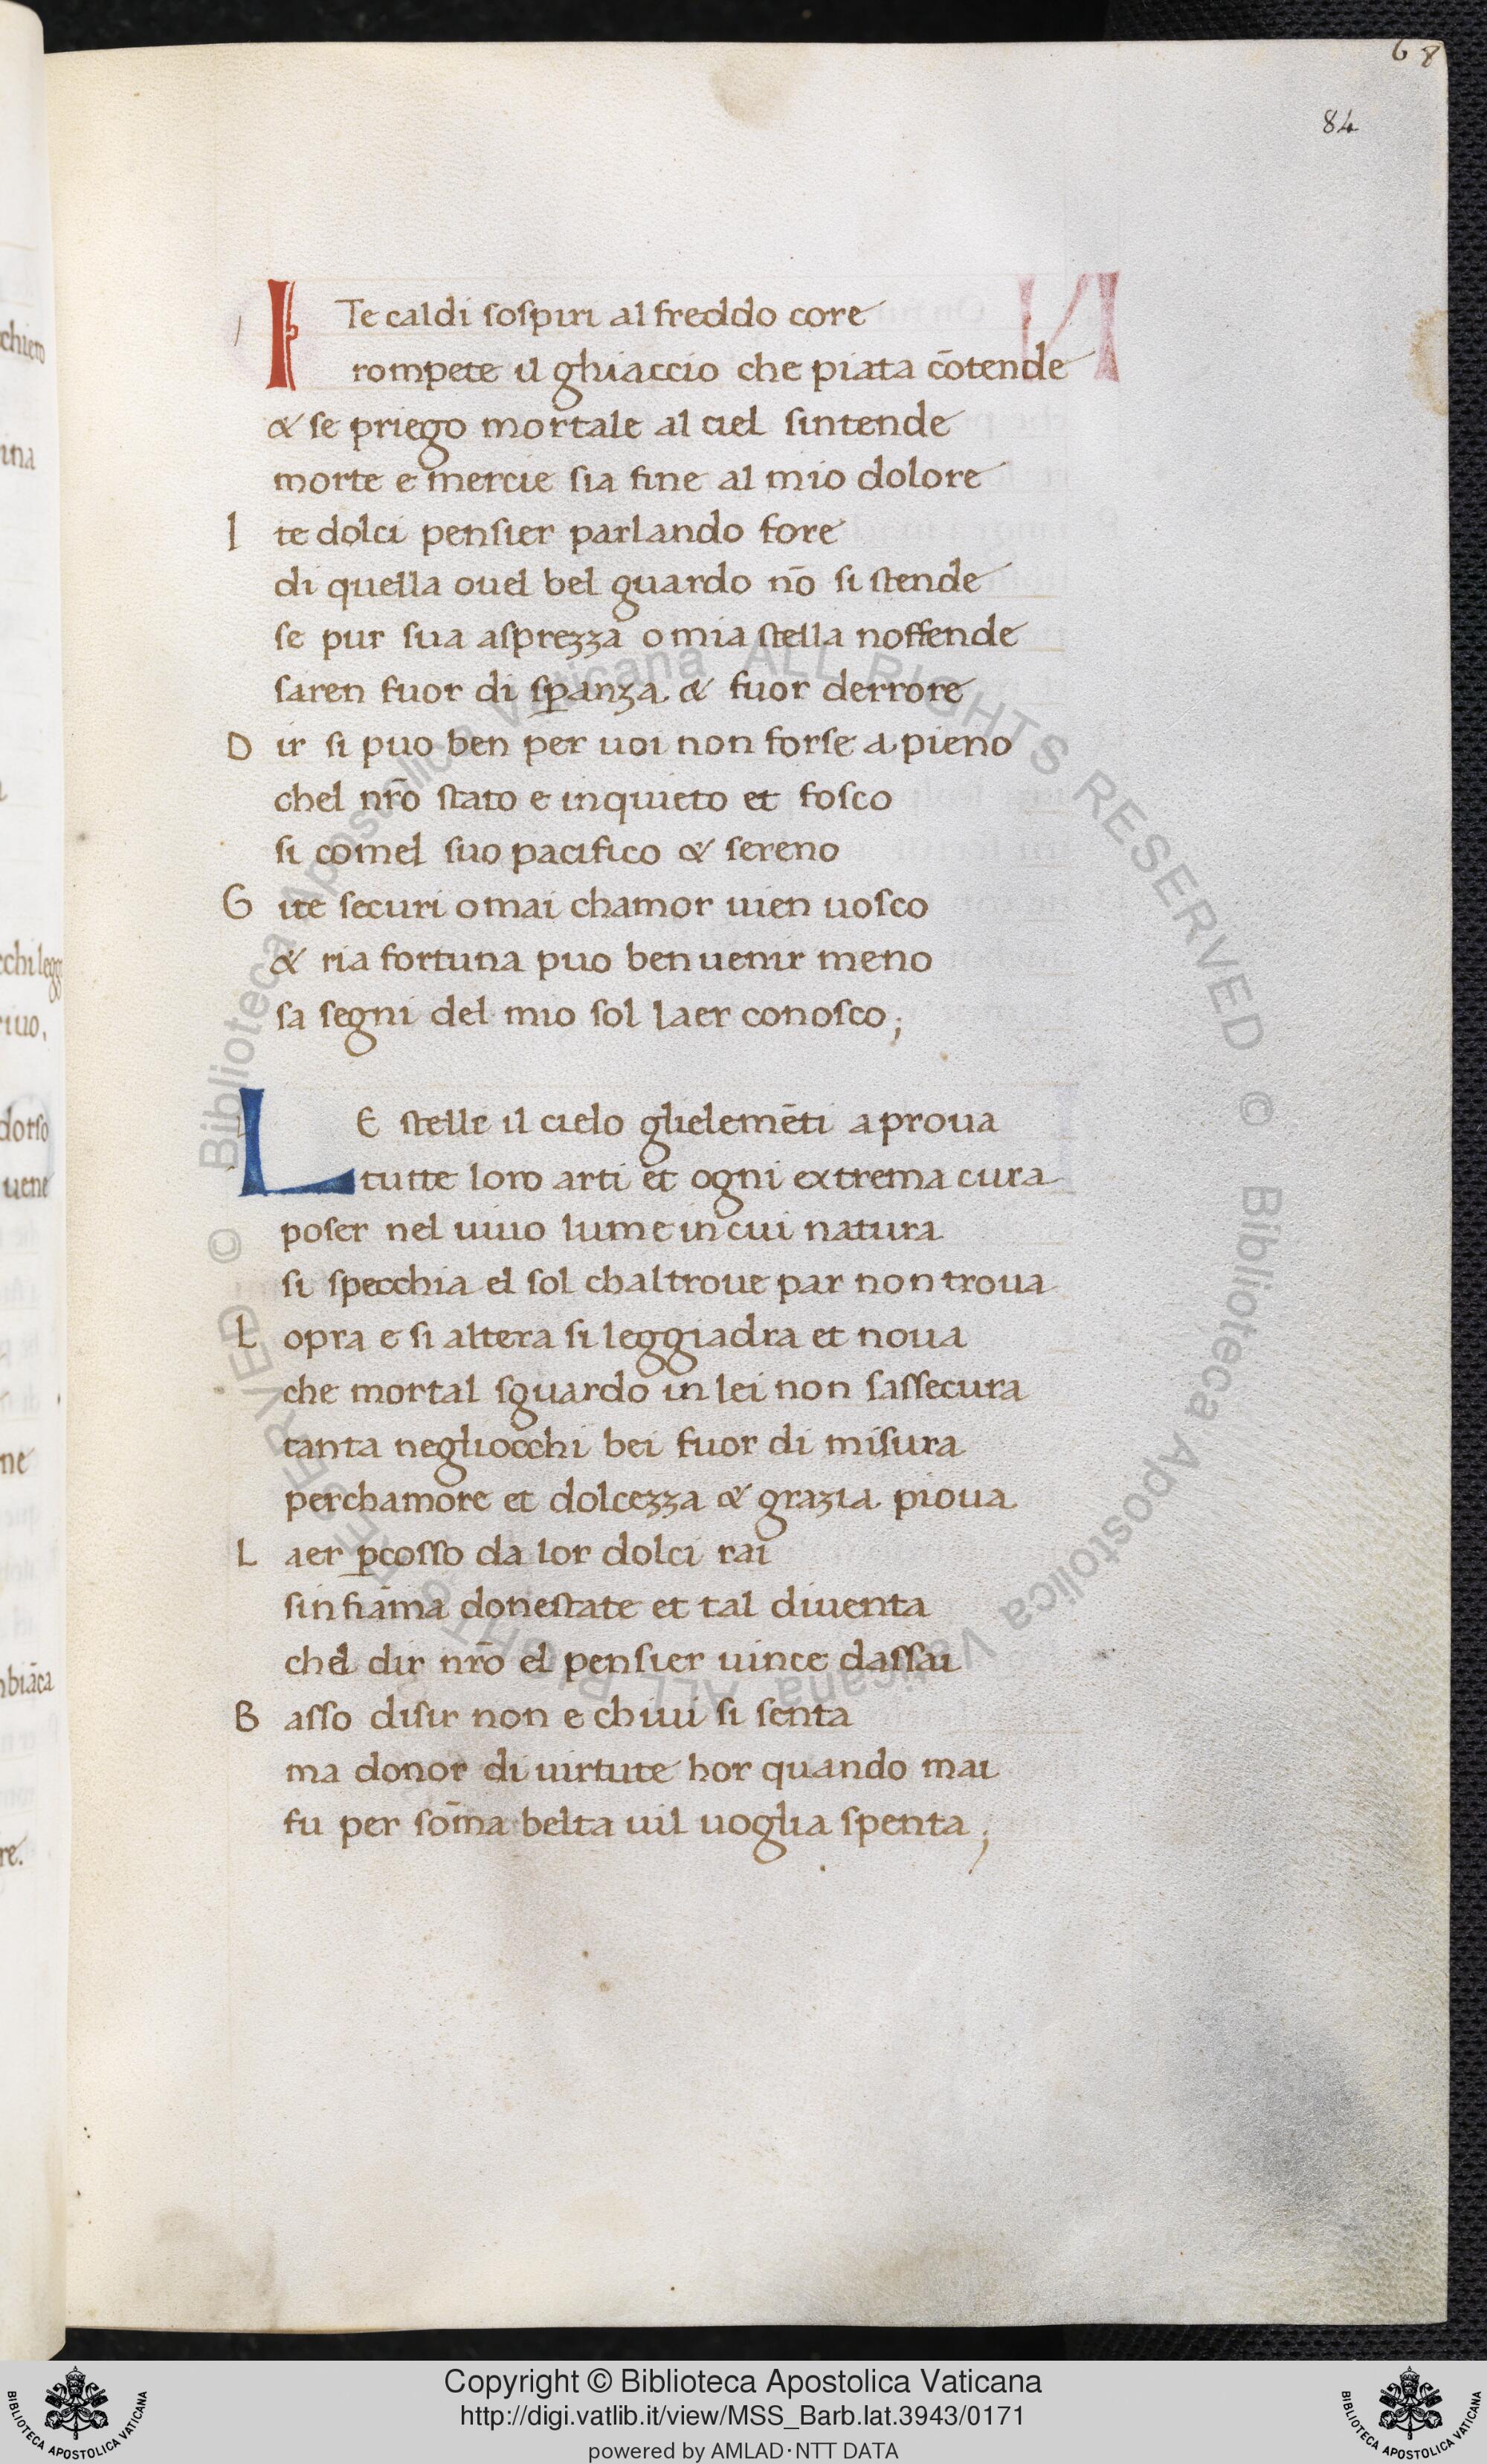 68
84
I Te caldi sospiri al freddo core
rompete il ghiaccio che piata cōtende
& se priego mortale al ciel sintende
morte e mercie sia fine al mio dolore
I te dolci pensier parlando fore
di quella ouel bel guardo nō si stende
se pur sua asprezza o mia stella noffende
saren fuor di sꝑanza & fuor derrore
D ir si puo ben per uoi non forse a pieno
chel nr̄o stato e inquieto et fosco
si comel suo pacifico & sereno
G ite securi omai chamor uien uosco
& ria fortuna puo ben uenir meno
sa segni del mio sol laer conosco;
L E stelle il cielo glielemēti a proua
tutte loro arti et ogni extrema cura
poser nel uiuo lume in cui natura
si specchia el sol chaltroue par non troua
L opra e si altera si leggiadra et noua
che mortal sguardo in lei non sassecura
tanta negliocchi bei fuor di misura
perchamore et dolcezza & grazia pioua
L aer ꝑcosso da lor dolci rai
sinfiāma donestate et tal diuenta
chel dir nr̄o el pensier uince dassai
B asso disir non e chiui si senta
ma donor di uirtute hor quando mai
fu per sōma belta uil uoglia spenta;
chiero
ina
cchi legg
riuo,
dorso
uene
ne
biāca
re.
© Biblioteca Apostolica Vaticana ALL RIGHTS RESERVED © Biblioteca Apostolica Vaticana ALL RIGHTS RESERVED
Copyright © Biblioteca Apostolica Vaticana
http://digi.vatlib.it/view/MSS_Barb.lat.3943/0171
powered by AMLAD·NTT DATA
BIBLIOTECA APOSTOLICA VATICANA
BIBLIOTECA APOSTOLICA VATICANA